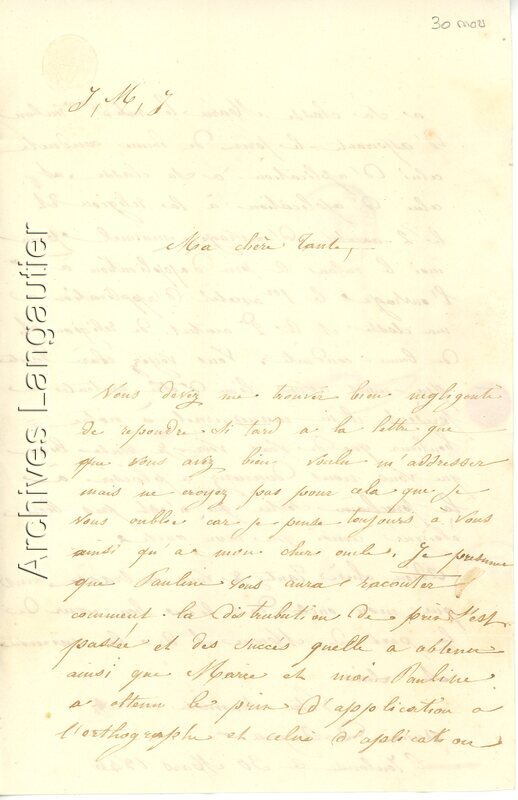 30 mars
J, M, J
Ma chère tante,
Vous devez me trouver bien négligente
de repondre si tard a la lettre que
que vous avez bien voulu m'addresser
mais ne croyez pas pour cela que je
vous oublie car je pense toujours a vous
ainsi qu'a mon cher oncle. Je presume
que Pauline vous aura raconter
comment la distribution de prix s'est
passée et des succès quelle a obtenu
ainsi que Marie et moi Pauline
a obtenu le prix d'application a
l'orthographe et celui d'aplication
Archives Langautier